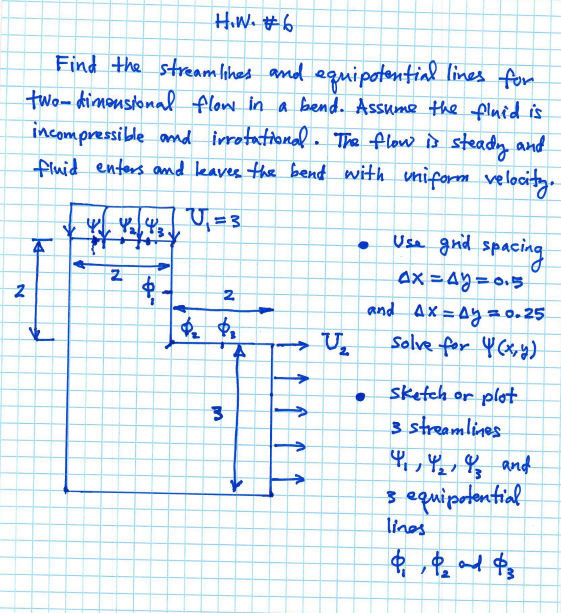 H.W. #6
Find the streamlines and equipotential lines for
two-dimensional flow in a bend. Assume the fluid is
incompressible and irrotational. The flow is steady and
fluid enters and leaves the bend with uniform velocity.
ψ₁ ψ₂ ψ₃ U₁ = 3
2
2
ϕ₁
2
ϕ₂ ϕ₃
U₂
3
• Use grid spacing
Δx = Δy = 0.5
and Δx = Δy = 0.25
Solve for ψ(x,y)
• Sketch or plot
3 streamlines
ψ₁, ψ₂, ψ₃ and
3 equipotential
lines
ϕ₁, ϕ₂ and ϕ₃